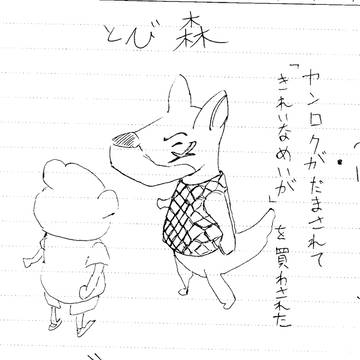 とび森
ヤンロクがだまされて
「きれいなめいが」を買わされた